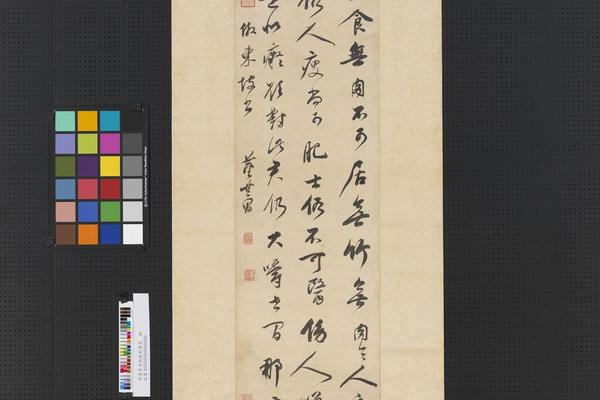 食無肉不可居無竹無肉令人
俗人瘦尚可肥士俗不可醫傍人
似癡若對此君仍大嚼世間那
倣東坡書 董其昌